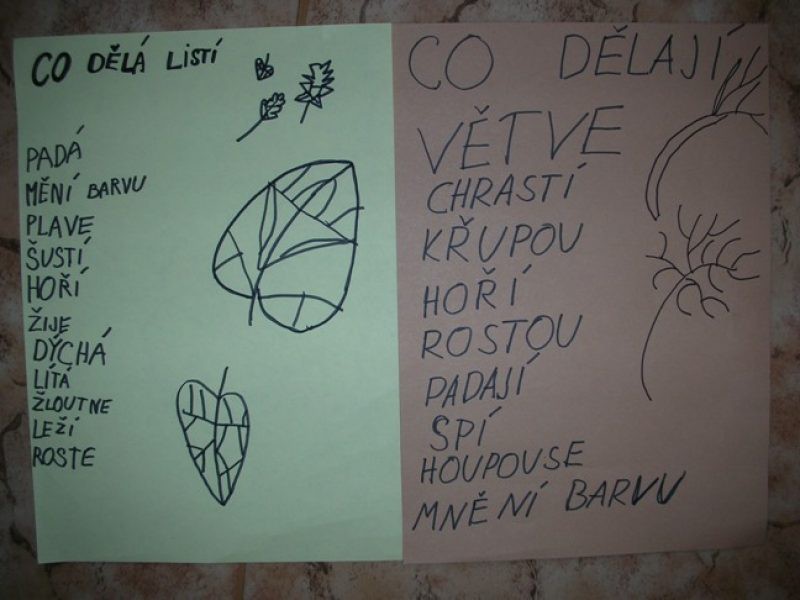 CO DĚLÁ LISTÍ
PADÁ
MĚNÍ BARVU
PLAVE
ŠUSTÍ
HOŘÍ
ŽIJE
DÝCHÁ
LÍTÁ
ŽLOUTNE
LEŽÍ
ROSTE
CO DĚLAJÍ
VĚTVE
CHRASTÍ
KŘUPOU
HOŘÍ
ROSTOU
PADAJÍ
SPÍ
HOUPOUSE
MNĚNÍ BARVU